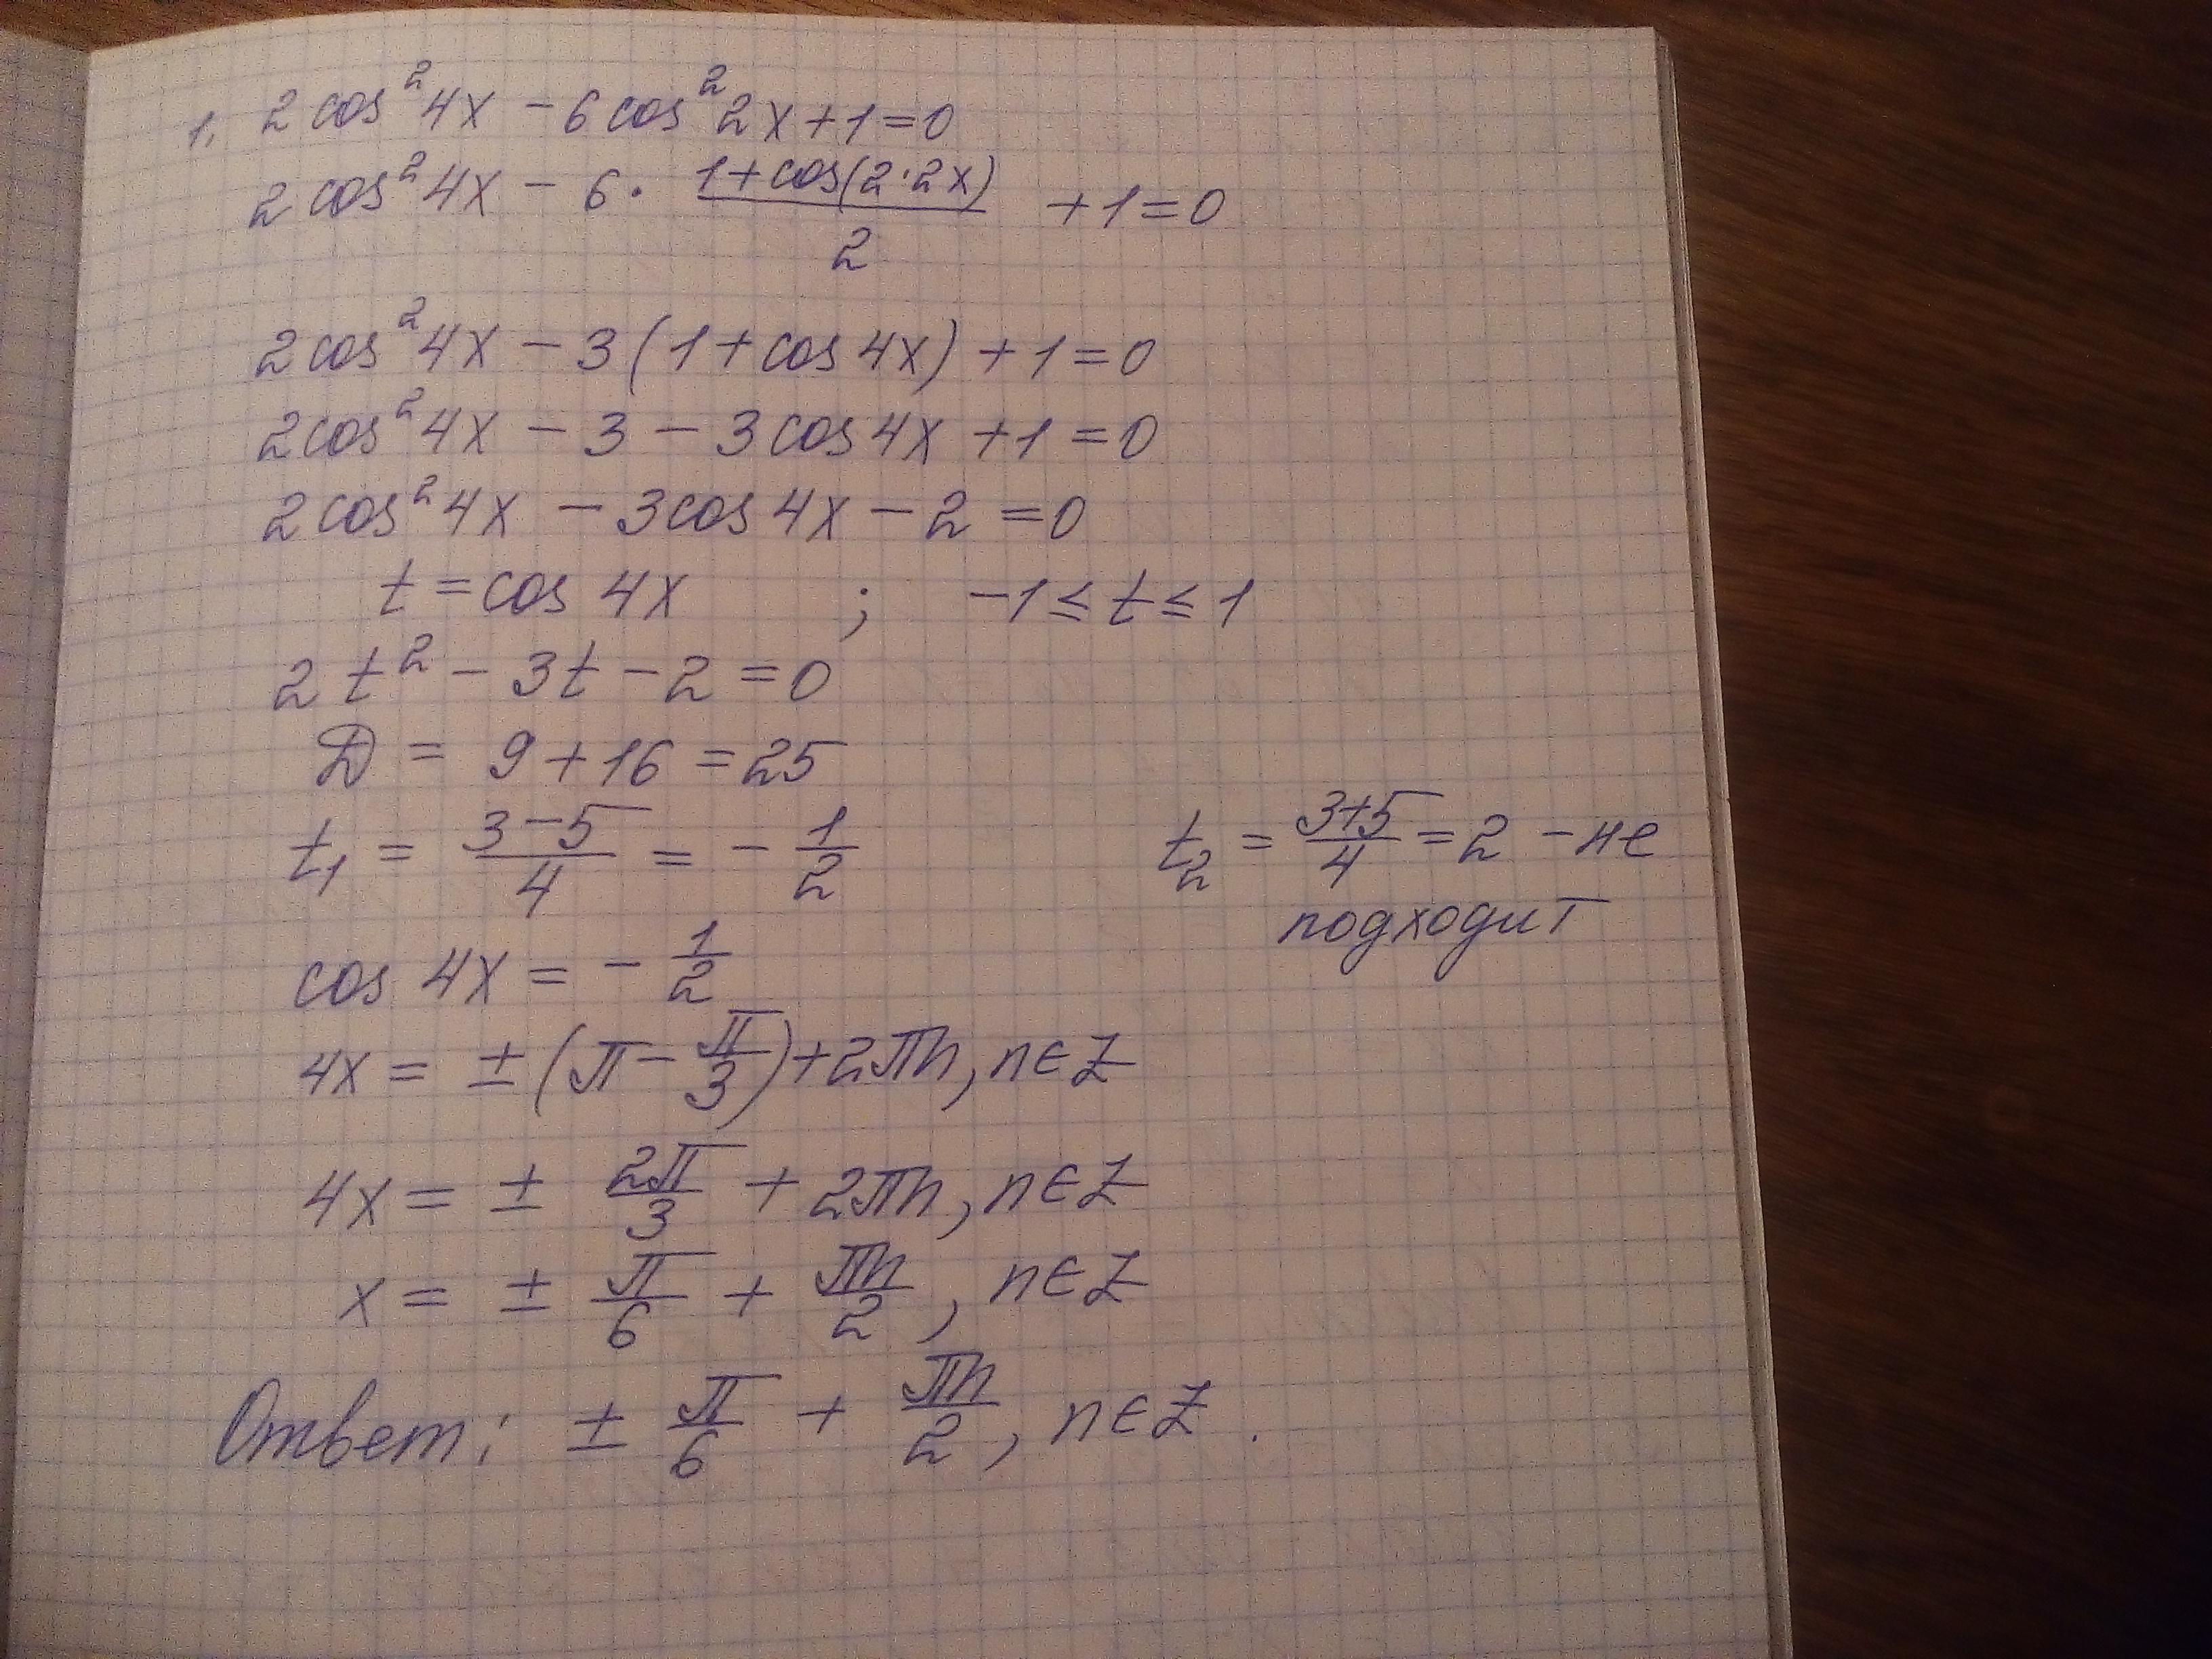 1. 2 cos² 4x − 6 cos² 2x + 1 = 0
2 cos² 4x − 6 · (1 + cos(2·2x))/2 + 1 = 0
2 cos² 4x − 3 (1 + cos 4x) + 1 = 0
2 cos² 4x − 3 − 3 cos 4x + 1 = 0
2 cos² 4x − 3 cos 4x − 2 = 0
t = cos 4x ; −1 ≤ t ≤ 1
2t² − 3t − 2 = 0
D = 9 + 16 = 25
t₁ = (3 − 5)/4 = − 1/2 t₂ = (3+5)/4 = 2 − не
подходит
cos 4x = − 1/2
4x = ± (π − π/3) + 2πn, n∈Z
4x = ± 2π/3 + 2πn, n∈Z
x = ± π/6 + πn/2, n∈Z
Ответ: ± π/6 + πn/2, n∈Z.